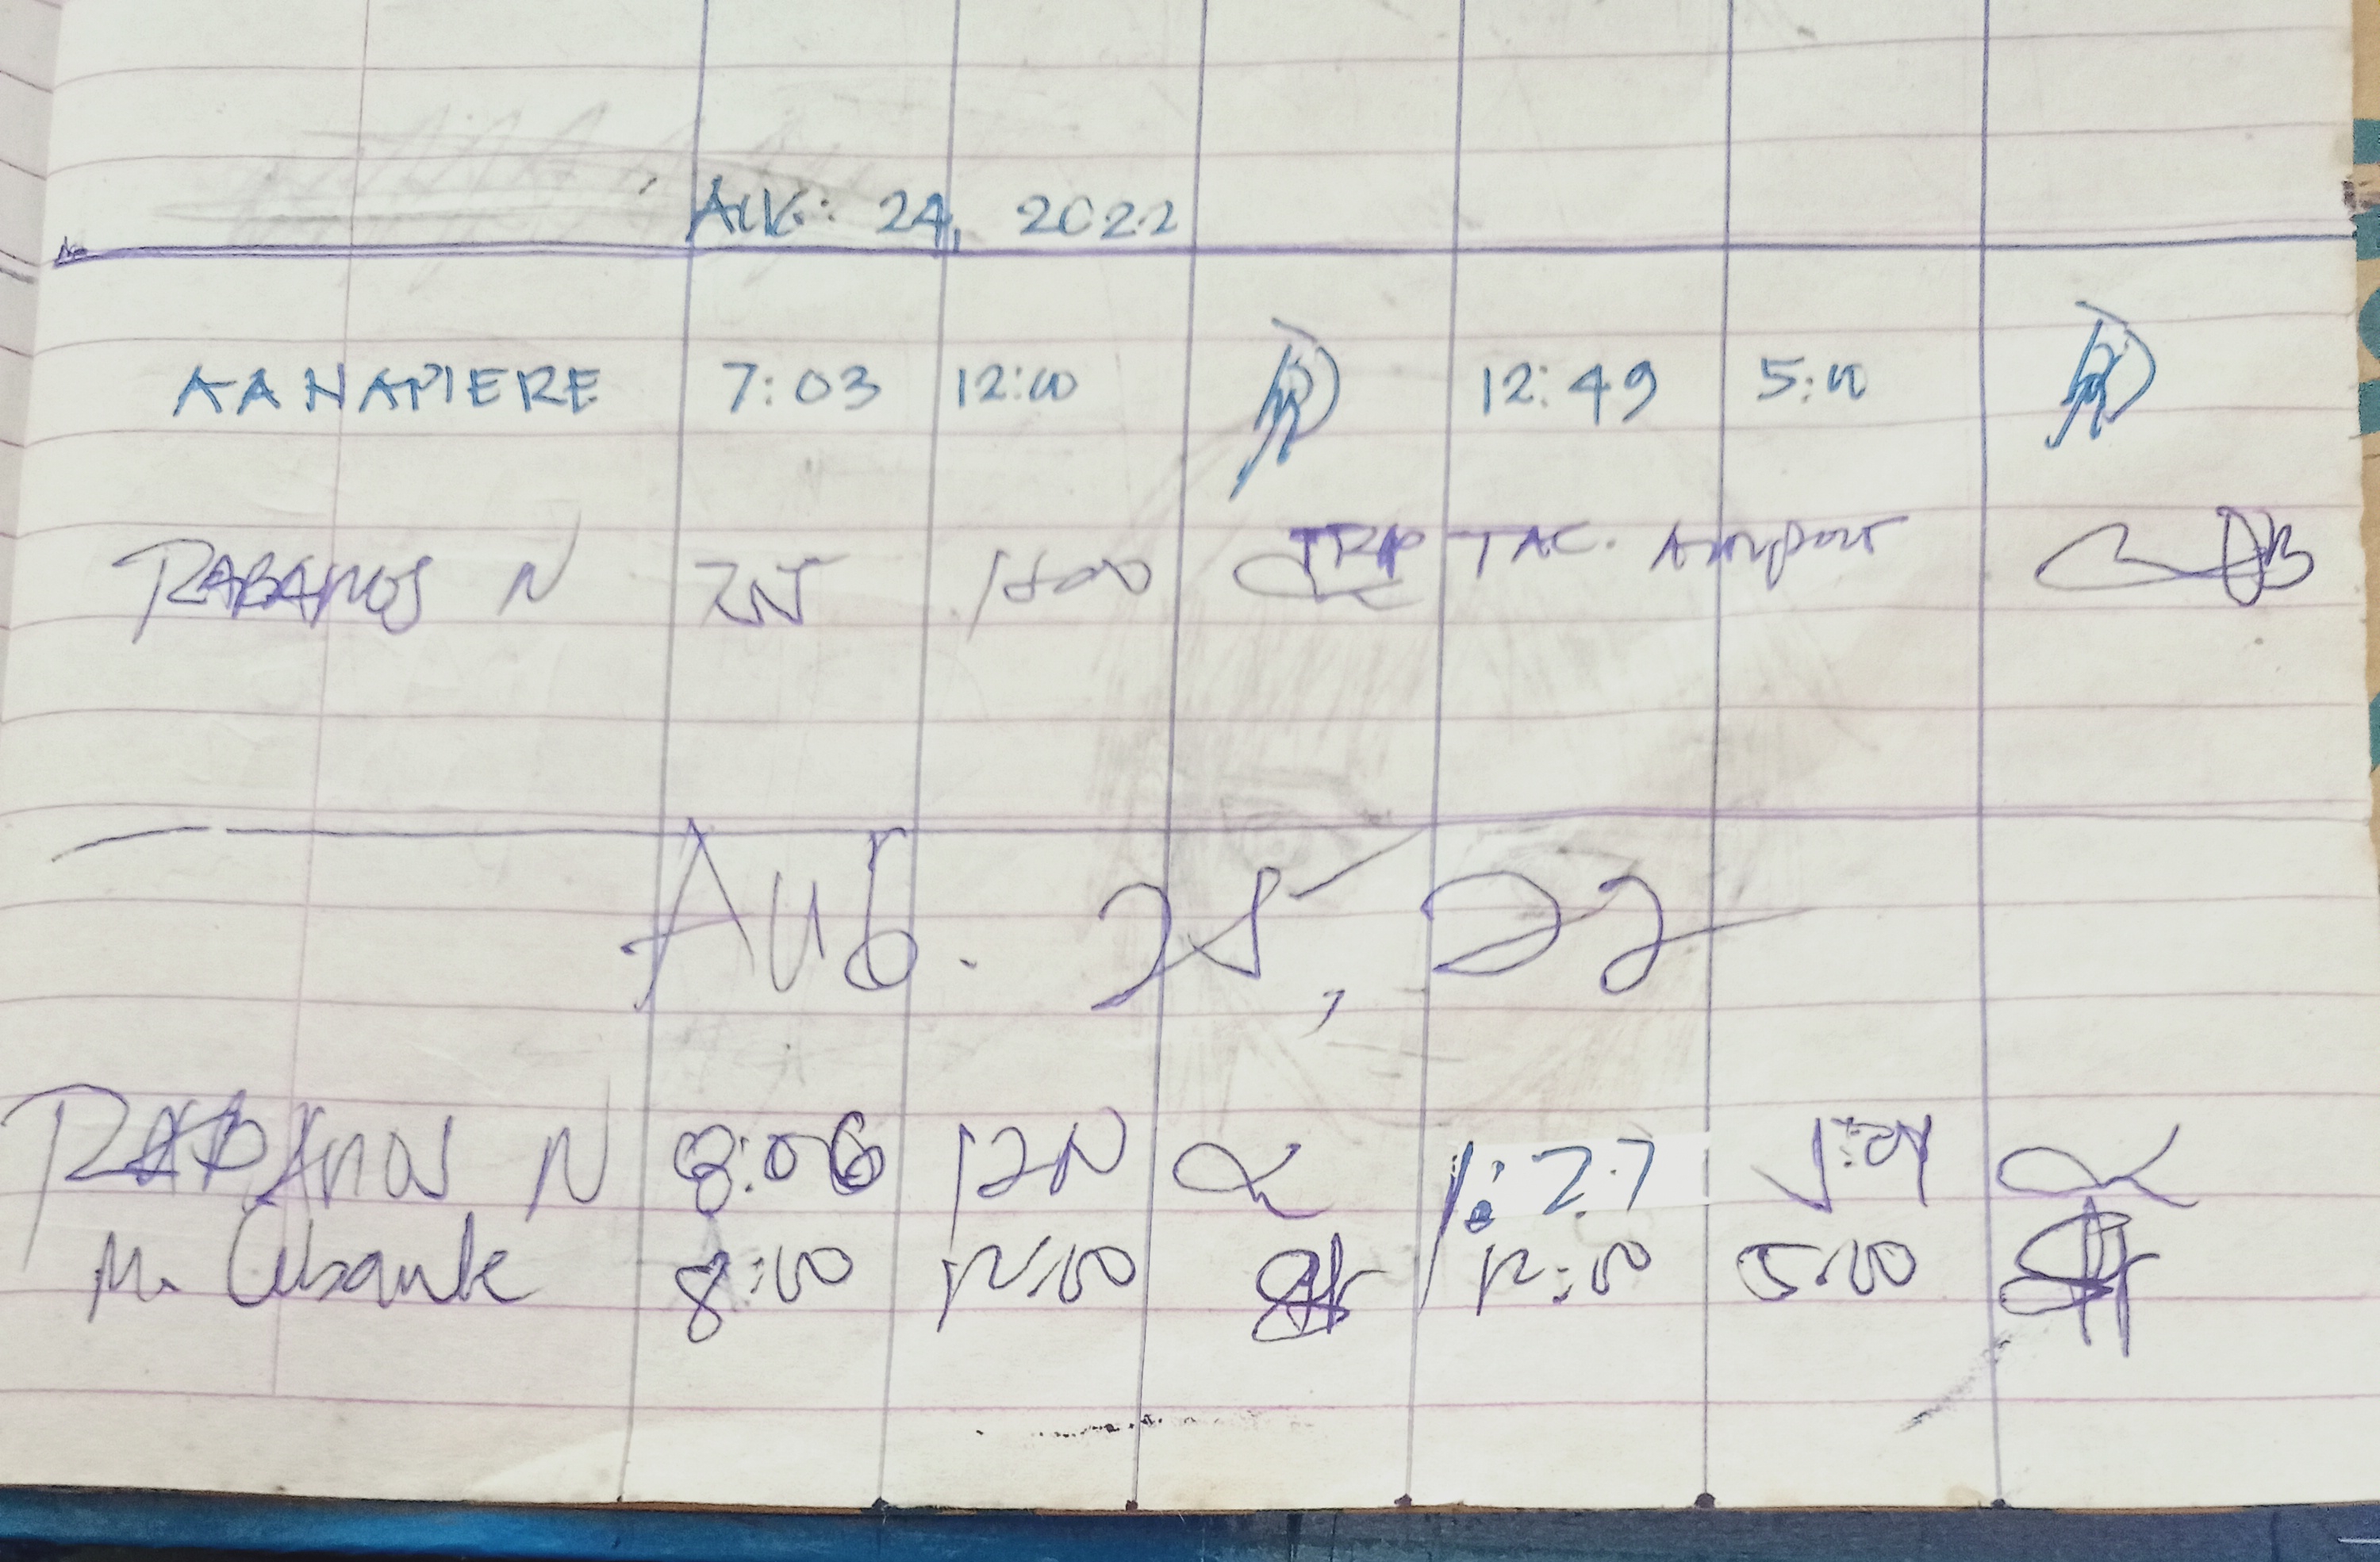 AUG. 24, 2022
AA NAPIERE 7:03 12:00 12:49 5:00
RABANOS N TRIP TAC. AIRPORT
AUG. 25, 22
RABANOS N 8:06 12N 1:27 5:04
M. 8:00 12:00 12:00 5:00